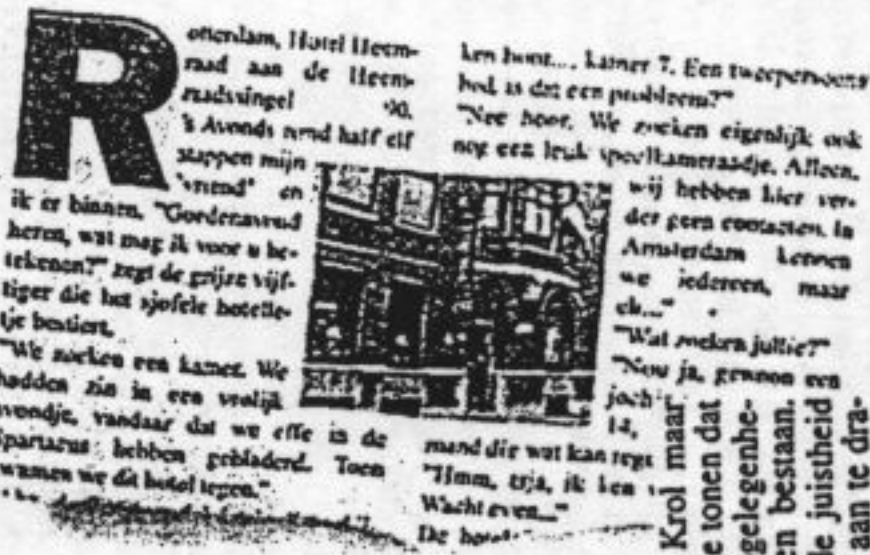 Rotterdam, Hotel Heem-
raad aan de Heem-
raadssingel 90.
's Avonds rond half elf
stappen mijn
'vriend' en
ik er binnen. "Goedenavond
heren, wat mag ik voor u be-
tekenen?" zegt de grijze vijf-
tiger die het sjofele hotelle-
tje bestiert.
"We zoeken een kamer. We
hadden zin in een vrolijk
avondje, vandaar dat we effe in de
Spartacus hebben gebladerd. Toen
kwamen we dit hotel tegen."
ken hoor..., kamer 7. Een tweepersoons
bed, is dat een probleem?"
"Nee hoor. We zoeken eigenlijk ook
nog een leuk speelkameraadje. Alleen,
wij hebben hier ver-
der geen contacten. In
Amsterdam kennen
we iedereen, maar
"Wat zoeken jullie?"
"Nou ja, gewoon een
joch
14,
mand die wat kan
"Hmm, tja, ik ken
Wacht even..."
De
Krol maar
e tonen dat
gelegenhe-
en bestaan.
e juistheid
aan te dra-